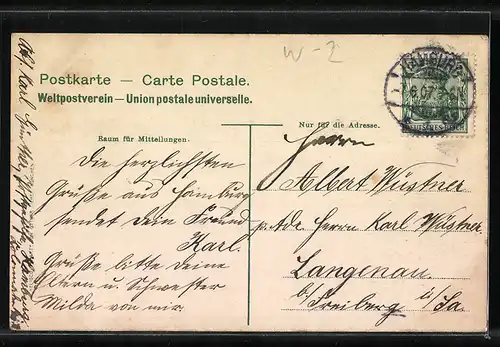 W-Z
Postkarte — Carte Postale.
Weltpostverein — Union postale universelle.
Raum für Mitteilungen.
Nur für die Adresse.
HAMBURG
6.07
DEUTSCHES REICH
Die herzlichsten
Grüße aus Hamburg
sendet Dein Freund
Karl.
Grüße bitte deine
Eltern u. Schwester
Milda von mir
Herrn
Albert Wüstner
p. Adr. Herrn Karl Wüstner
Langenau.
b/ Freiberg i/Sa.
Abs. Karl Hamburg